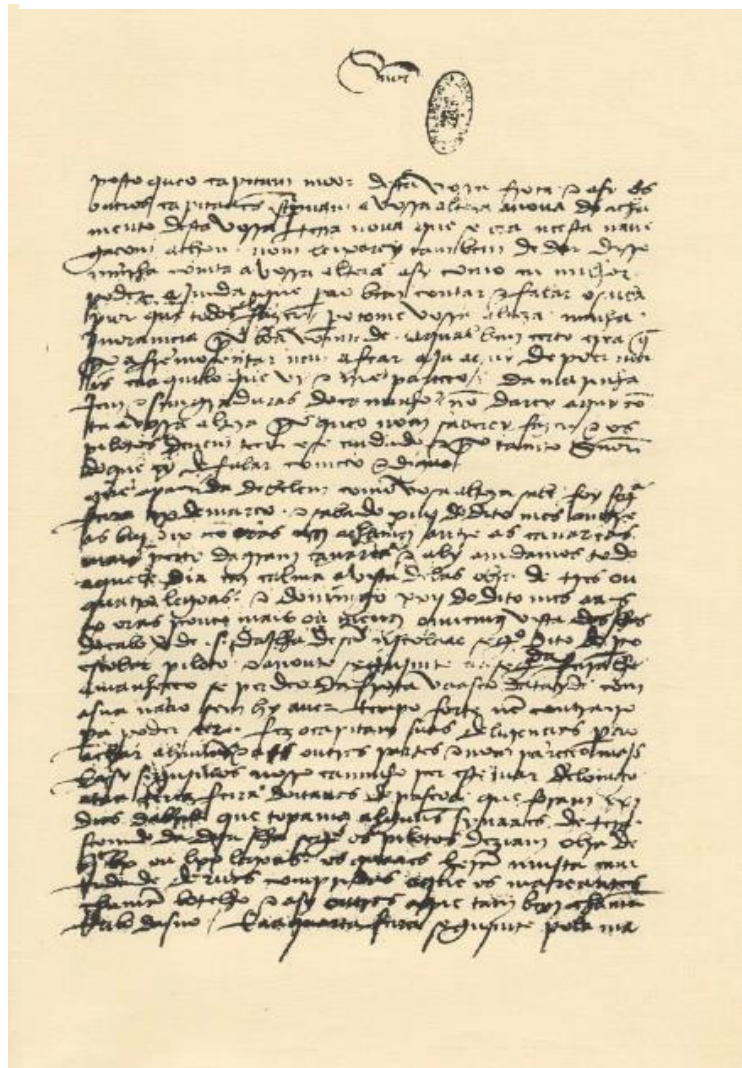 Snõr
posto que o capitam moor desta vossa frota e asy os
outros capitaães screpuam a vossa alteza a noua do acha
mento desta vossa terra noua que se ora neesta naue
gaçam achou. nom leixarey tambem de dar disso
minha comta a vossa alteza asy como eu milhor
poder ajmda que pera o bem contar e falar o saiba
pior que todos fazer. pero tome vossa alteza minha
jnoramçia por boa vomtade. a qual bem certo crea que
por afremosentar nem afear aja aquy de poer ma
is ca aquilo que vy e me pareçeo. da marinha
jem e simgraduras do caminho nõ darey aquy cõ
ta a vossa alteza porque o nom saberey fazer e os
pilotos deuem teer ese cuidado e por tanto Snõr
do que ey de falar começo e diguo
que a partida de belem como vosa alteza sabe foy segª
feira ix de março. e sabado xiiij do dito mes antre
as biij e ix oras nos achamos antre as canareas
mais perto da gram canarea e aly amdamos todo
aquele dia em calma a vista delas obra de tres ou
quatro legoas. e domingo xxij do dito mes aas x
oras pouco mais ou menos ouuemos vista das jlhas
do cabo verde .s. da jlha de sã njcolaao segº dito de pero
escolar piloto. e a noute segujmte aa segda feira lhe
amanheçeo se perdeo da frota vaasco datayde com
a sua naao sem hy auer tempo forte nẽ contrairo
pera poder seer. fez o capitam suas deligençias pera o
achar a huũas e a outras partes e nom pareçeo majs
E asy segujmos nosso caminho per este mar delomgo
ataa terça feira doitauas de pascoa que foram xxj
dias dabril que topamos alguũs synaaes de terra
seendo da dita jlha segº os pilotos deziam obra de
bjc lx ou lxx legoas. os quaaes heram mujta cam
tidade deruas compridas a que os mareantes
chamã botelho e asy outras a que tam bem chamã
rrabo dasno. E aa quarta feira segujmte pola ma